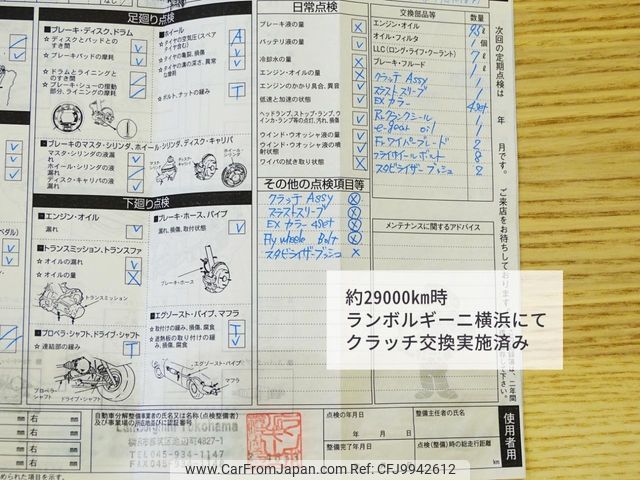 足廻り点検
■ブレーキ・ディスク、ドラム
☆ディスクとパッドとのすき間
☆ブレーキパッドの摩耗
☆ドラムとライニングとのすき間
☆ブレーキ・シューの摺動部分、ライニングの摩耗
■ホイール
☆タイヤの空気圧(スペアタイヤ含む)
☆タイヤの亀裂、損傷
☆タイヤの溝の深さ、異常な摩耗
☆ボルト、ナットの緩み
■ブレーキのマスタ・シリンダ、ホイール・シリンダ、ディスク・キャリパ
マスタ・シリンダの液漏れ
ホイール・シリンダの液漏れ
ディスク・キャリパの液漏れ
下廻り点検
■エンジン・オイル
漏れ
■トランスミッション、トランスファ
☆オイルの漏れ
☆オイルの量
トランスミッション
■プロペラ・シャフト、ドライブ・シャフト
☆連結部の緩み
プロペラ・シャフト
ドライブ・シャフト
■ブレーキ・ホース、パイプ
漏れ、損傷、取付状態
ブレーキ・ホース
■エグゾースト・パイプ、マフラ
☆取付けの緩み、損傷、腐食
☆遮熱板の取り付けの緩み、損傷、腐食
エグゾースト・パイプ
マフラ
日常点検
ブレーキ液の量
バッテリ液の量
冷却水の量
エンジン・オイルの量
エンジンのかかり具合、異音
低速と加速の状態
ヘッドランプ、ストップ・ランプ、ウインカ・ランプ等の点灯、汚れ、損傷
ウインド・ウオッシャ液の量
ウインド・ウオッシャ液の噴射状態
ワイパの拭き取り状態
その他の点検項目等
クラッチ Assy
スラストスリーブ
EX カラー 4set
Fly wheele Bolt
スタビライザーブッシュ
交換部品等
数量
エンジン・オイル
オイル・フィルタ
LLC(ロング・ライフ・クーラント)
ブレーキ・フルード
クラッチ Assy
スラストスリーブ
EX カラー 4set
Rrクランクシール
e-gear oil
Frワイパーブレード
フライホイールボルト
スタビライザーブッシュ
メンテナンスに関するアドバイス
次回の定期点検は 年 月です。 ご来店をお待ちしております
約29000km時
ランボルギーニ横浜にて
クラッチ交換実施済み
自動車分解整備事業者の氏名又は名称(点検整備者)及び事業場の所在地並びに認証番号
Lamborghini Yokohama
TEL045-934-1147
FAX045-934-
点検の年月日
整備主任者の氏名
整備完了年月日
点検(整備)時の総走行距離
km
使用者用